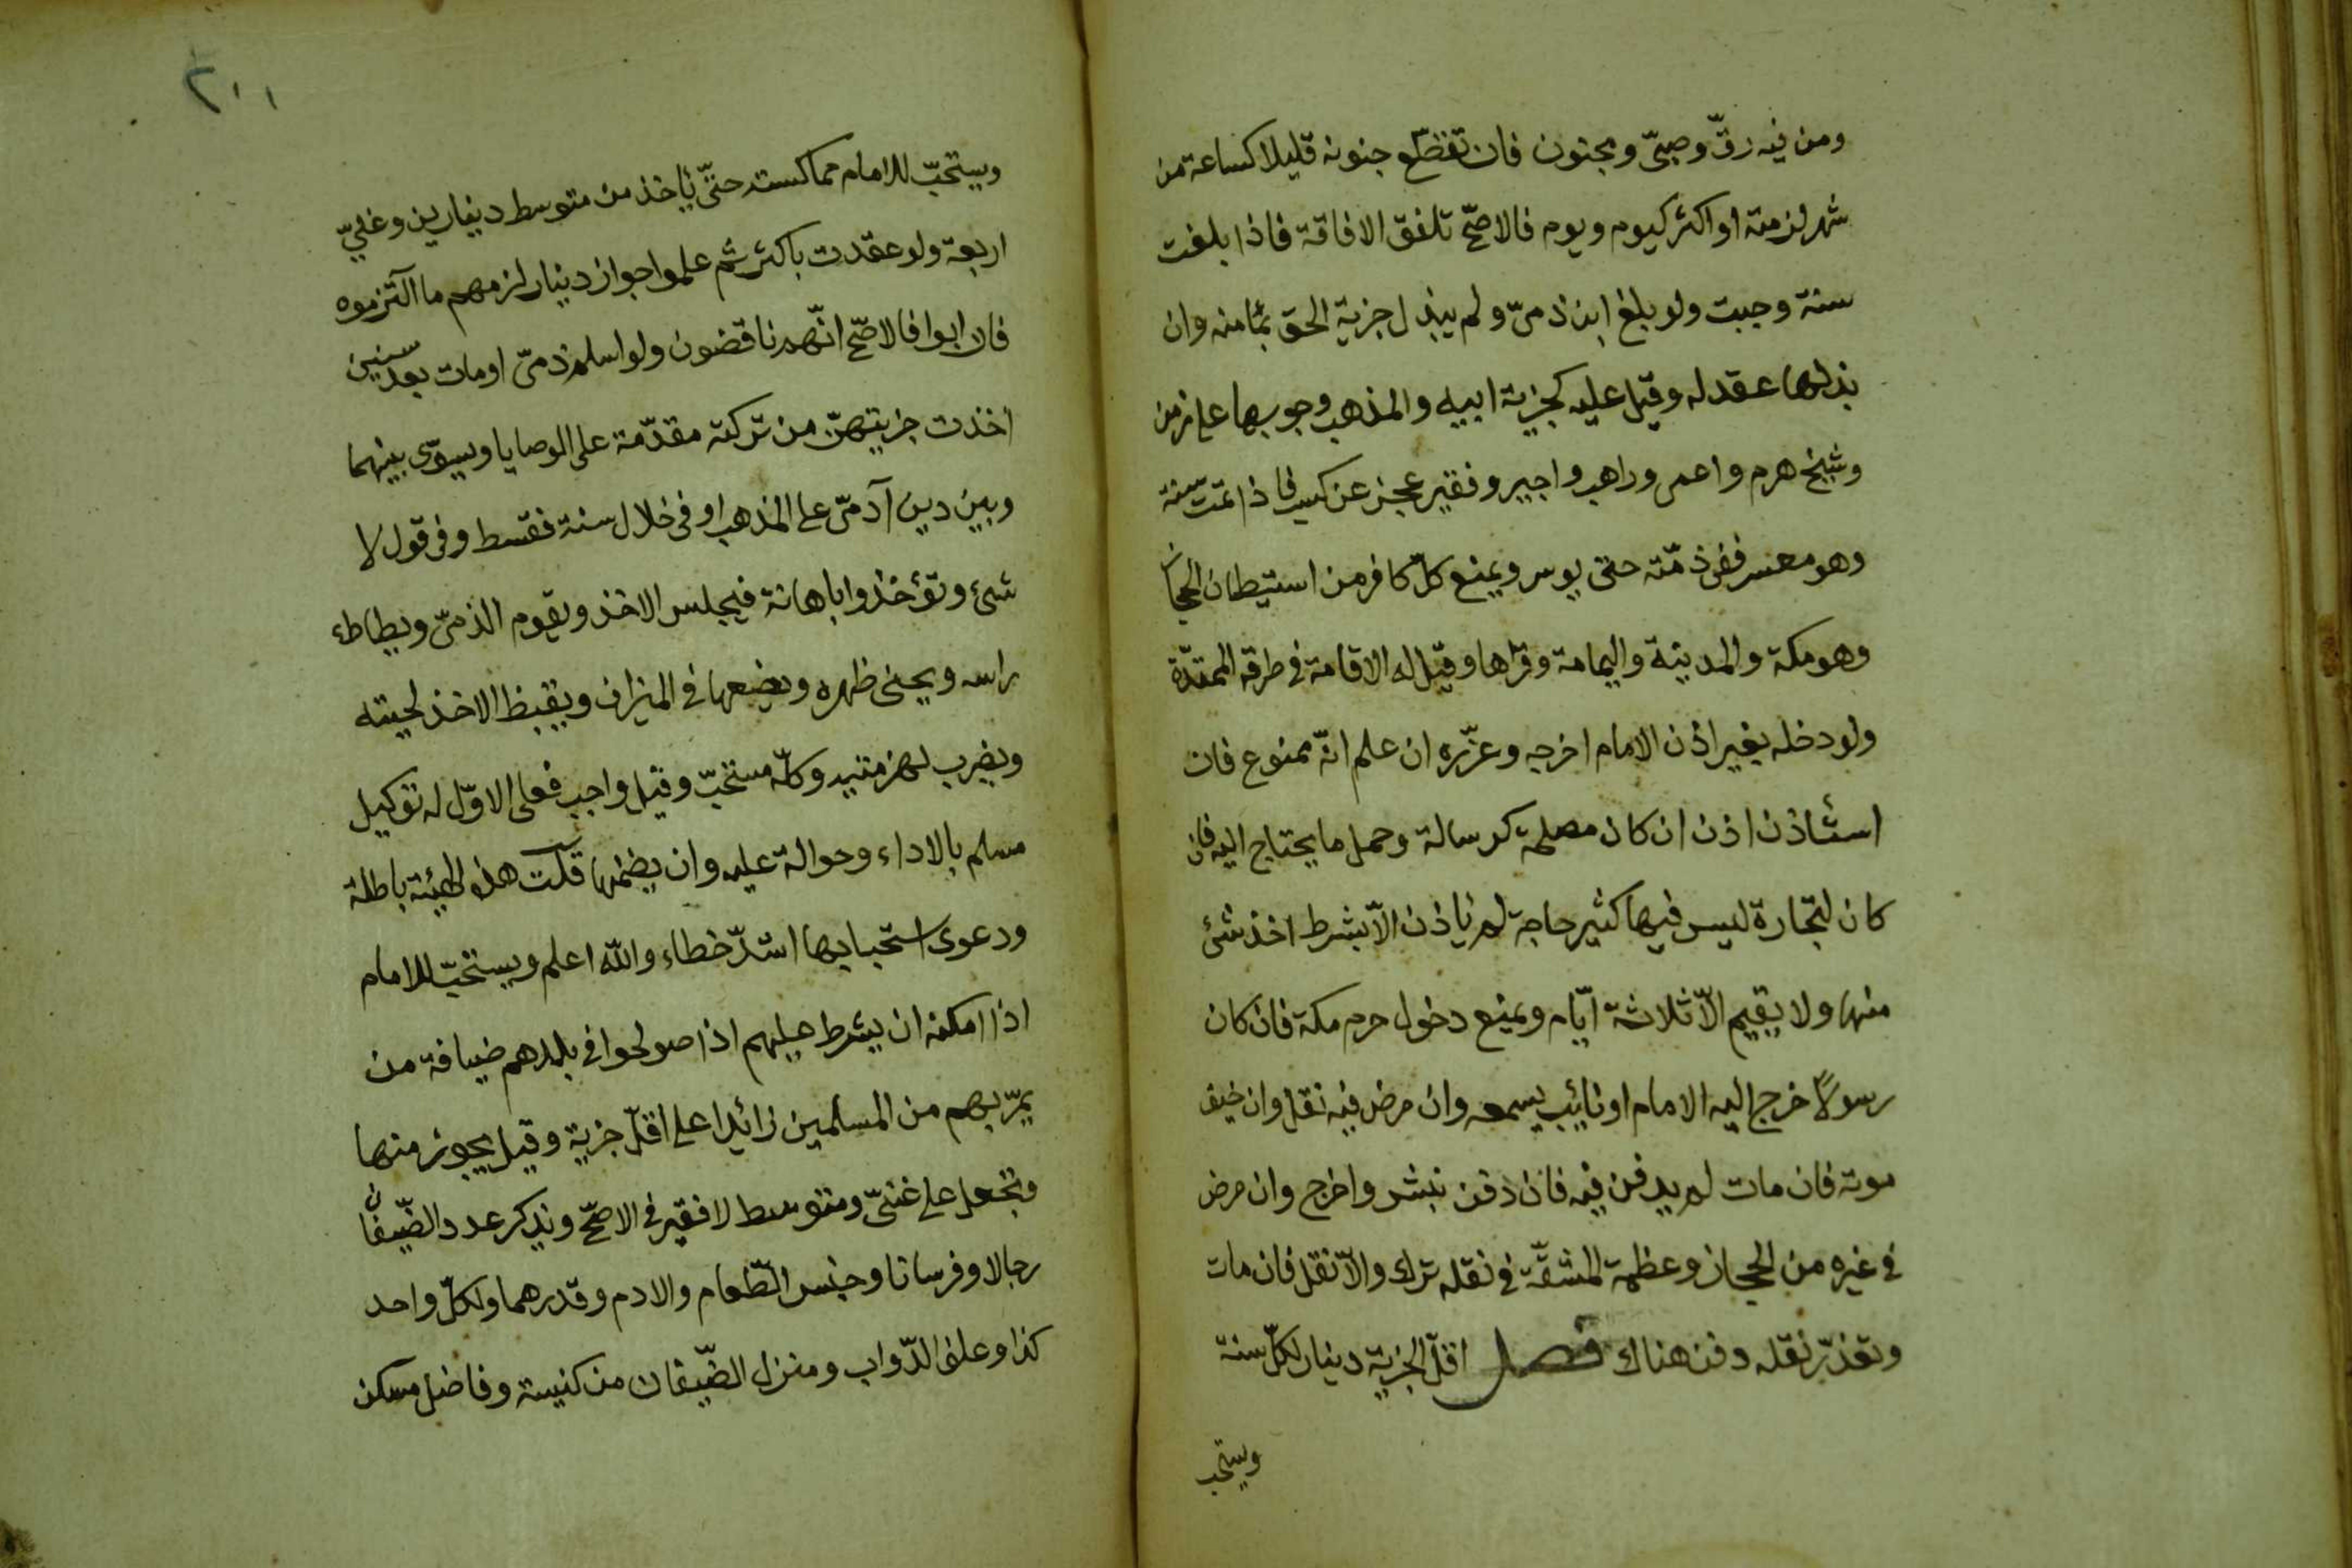 ومن فيه رقّ وصبىّ ومجنون فان تقطّع جنونه قليلا كساعة من
شهر لزمته او اكثر كيوم ويوم فالاصحّ تلفق الافاقة فاذا بلغت
سنة وجبت ولو بلغ ابن ذمىّ ولم يبذل جزية الحق بمأمنه وان
بذلها عقد له وقيل عليه كجزية ابيه والمذهب وجوبها على زمن
وشيخ هرم واعمى وراهب واجير وفقير عجز عن كسب فاذا تمت سنة
وهو معسر ففى ذمّته حتى يوسر ويمنع كلّ كافر من استيطان الحجاز
وهو مكة والمدينة واليمامة وقراها وقيل له الاقامة فى طرقه الممتدّة
ولو دخله بغير اذن الامام اخرجه وعزّره ان علم انّه ممنوع فان
استأذن اذن ان كان مصلحة كرسالة وحمل ما يحتاج اليه فان
كان لتجارة ليس فيها كثير حاجة لم ياذن الاّ بشرط اخذ شئ
منها ولا يقيم الاّ ثلاثة ايّام ويمنع دخول حرم مكة فان كان
رسولاً خرج اليه الامام او نائب يسمعه وان مرض فيه نقل وان خيف
موته فان مات لم يدفن فيه فان دفن نبش واخرج وان مرض
فى غيره من الحجاز وعظمة المشقّة فى نقله ترك والاّ نقل فان مات
وتعذّر نقله دفن هناك فصل اقلّ الجزية دينار لكلّ سنة
ويستحب
٢٠١
ويستحبّ للامام مماكسته حتّى يأخذ من متوسط دينارين وغنىّ
اربعة ولو عقدت باكثر ثم علموا جواز دينار لزمهم ما التزموه
فان ابوا فالاصحّ انّهم ناقضون ولو اسلم ذمىّ او مات بعد سنين
اخذت جزيتهنّ من تركته مقدّمة على الوصايا ويسوّى بينهما
وبين دين آدمىّ على المذهب او فى خلال سنة فقسط وفى قول لا
شئ وتؤخذ باهانة فيجلس الاخذ ويقوم الذمىّ ويطاطء
راسه ويحنى ظهره ويضعها فى الميزان ويقبظ الاخذ لحيته
ويضرب لهزمتيه وكلّه مستحبّ وقيل واجب فعلى الاوّل له توكيل
مسلم بالاداء وحوالة عليه وان يضمنها قلت هذه الهيئة باطلة
ودعوى استحبابها اشدّ خطاء والله اعلم ويستحبّ للامام
اذا امكنه ان يشرط عليهم اذا صولحوا فى بلدهم ضيافة من
يمرّ بهم من المسلمين زائدا على اقلّ جزية وقيل يجوز منها
وتجعل على غنىّ ومتوسط لا فقير فى الاصحّ ويذكر عدد الضّيفان
رجالا وفرسانا وجنس الطّعام والادم وقدرهما ولكلّ واحد
كذا وعلف الدّواب ومنزل الضّيفان من كنيسة وفاضل مسكن